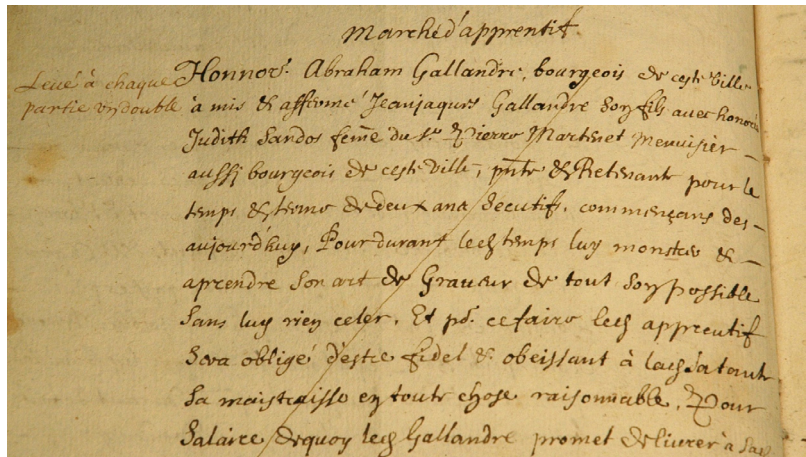 Marché d'apprentif.
Levé à chaque
partie un double
Honnor. Abraham Gallandre, bourgeois de ceste Ville
à mis & affermé Jeanjaques Gallandre son fils avec honorée
Judith Sandos feme du Sr. Pierre Martenet Menuisier
aussy bourgeois de ceste Ville, pnte & Retenant pour le
temps & terme de deux ans secutif, commençans des
aujourd'huy, Pour durant led temps luy monstrer &
aprendre son art de Graveur de tout son possible
sans luy rien celer, Et pr. ce faire led apprentif
sera obligé d'estre fidel & obeissant à lad
sa maistraisse en toute chose raisonnable, Pour
salaire dequoy led Gallandre promet delivrer à